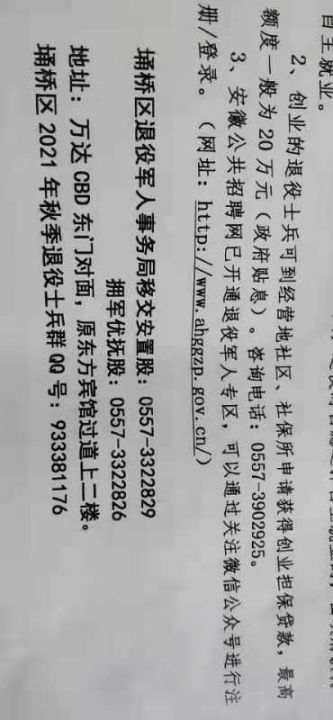 自主就业。
2、创业的退役士兵可到经营地社区、社保所申请获得创业担保贷款，最高
额度一般为20万元（政府贴息）。咨询电话：0557-3902925。
3、安徽公共招聘网已开通退役军人专区，可以通过关注微信公众号进行注
册/登录。（网址：http://www.ahggzp.gov.cn/）
埇桥区退役军人事务局移交安置股：0557-3322829
拥军优抚股：0557-3322826
地址：万达CBD东门对面，原东方宾馆过道上二楼。
埇桥区2021年秋季退役士兵群QQ号：933381176